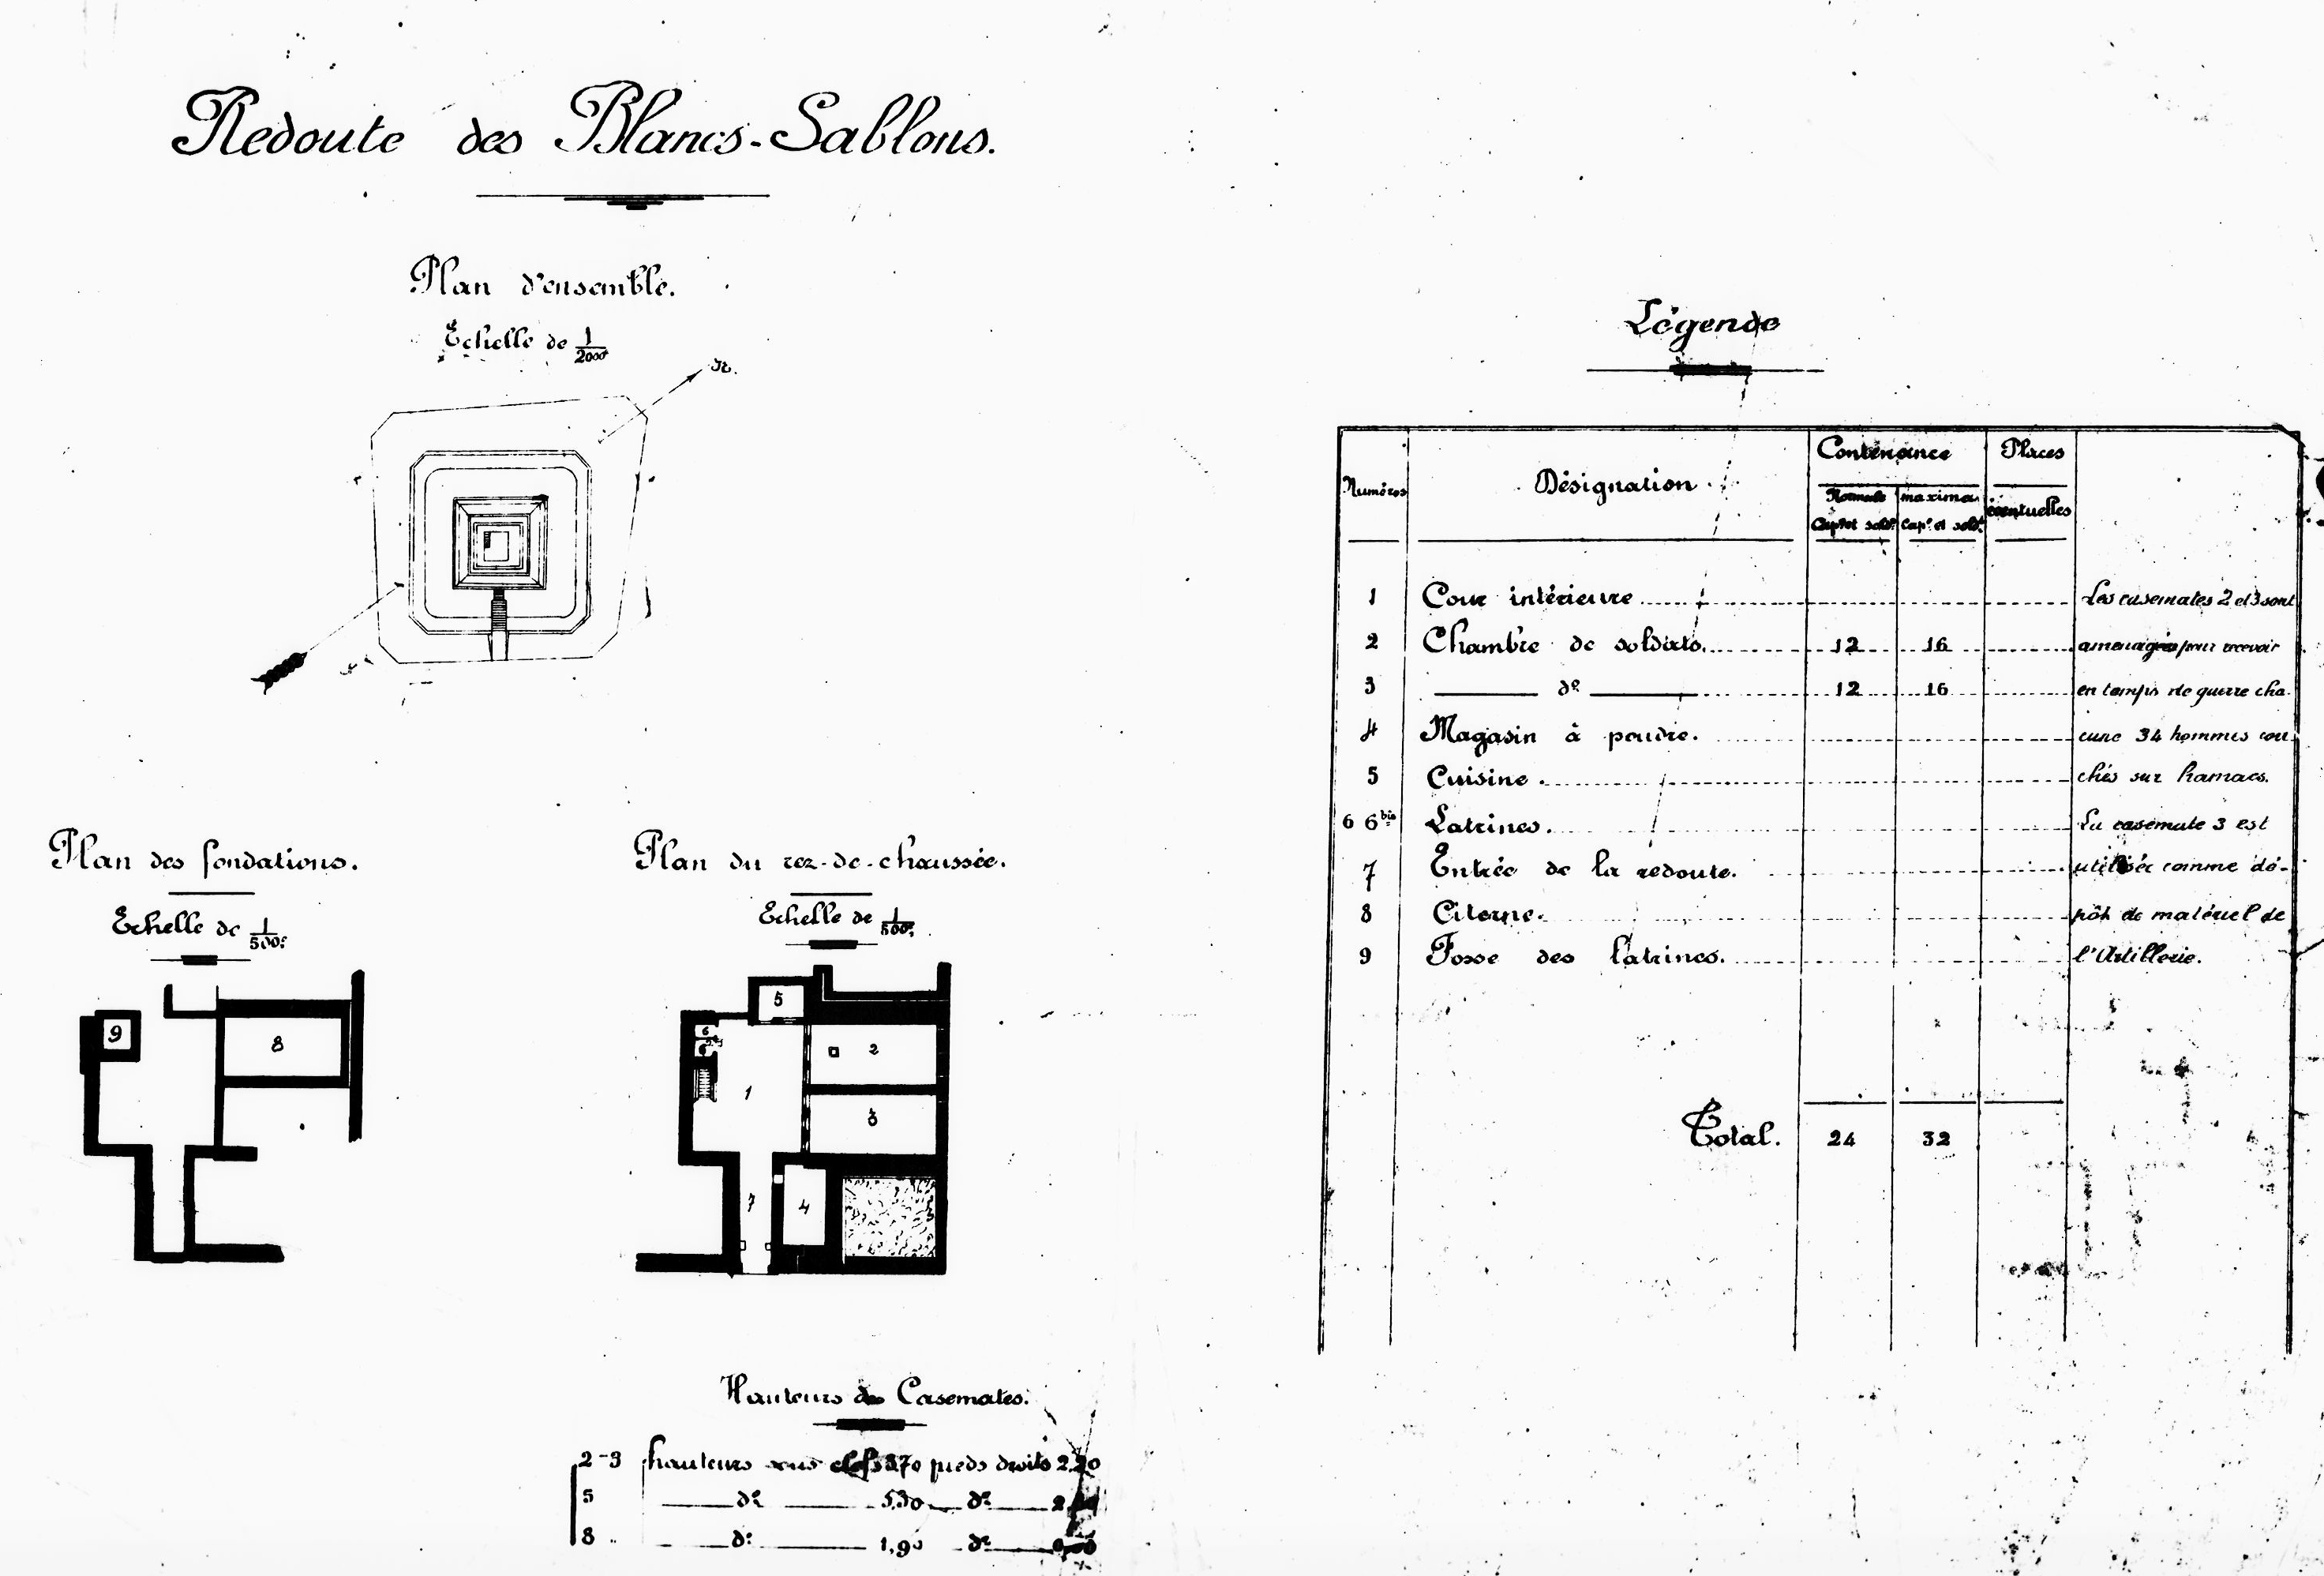 Redoute des Blancs-Sablons.
Plan d'ensemble.
Echelle de 1/2000
Plan des fondations.
Echelle de 1/500e
9
8
Plan du rez-de-chaussée.
Echelle de 1/500e
5
6
6
2
1
3
7
4
Hauteurs des Casemates.
2-3 hauteurs sous clefs 3,70 pieds droits 2,20
5 do 5,30 do
8 do 1,90 do
Légende
Numéros Désignation Contenance Places
Normale maxima eventuelles
Capal et soldt. Capal et soldt.
1 Cour intérieure Les casemates 2 et 3 sont
2 Chambre de soldats. 12 16 amenagées pour recevoir
3 do 12 16 en temps de guerre cha-
4 Magasin à poudre. cune 34 hommes cou
5 Cuisine. chés sur hamacs.
6 6bis Latrines. La casemate 3 est
7 Entrée de la redoute. utilisée comme dé-
8 Citerne. pôt de matériel de
9 Fosse des latrines. l'Artillerie.
Total. 24 32